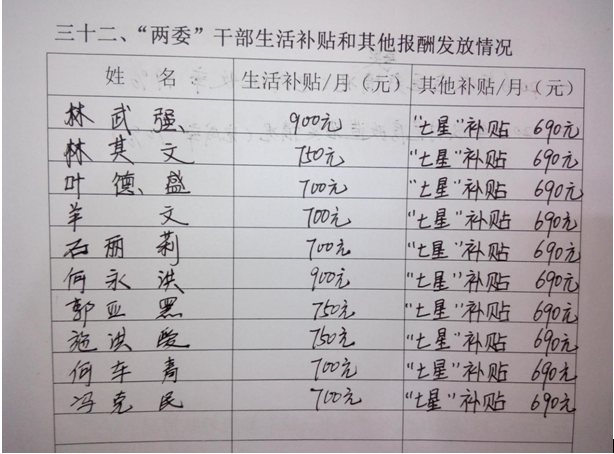 三十二、“两委”干部生活补贴和其他报酬发放情况
姓 名 生活补贴/月（元） 其他补贴/月（元）
林武强 900元 “七星”补贴 690元
林其文 750元 “七星”补贴 690元
叶德盛 700元 “七星”补贴 690元
羊文 700元 “七星”补贴 690元
石丽莉 700元 “七星”补贴 690元
何永洪 900元 “七星”补贴 690元
郭亚黑 750元 “七星”补贴 690元
施洪爱 750元 “七星”补贴 690元
何车青 700元 “七星”补贴 690元
冯克民 700元 “七星”补贴 690元